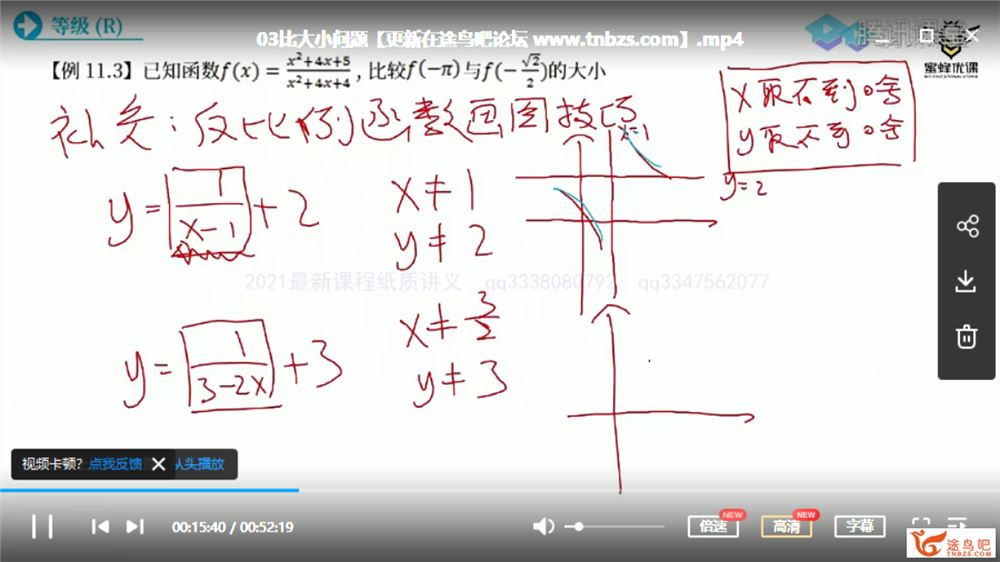 等级 (R)
腾讯课堂
03比大小问题【更新在途鸟吧论坛 www.tnbzs.com】.mp4
蜜蜂优课
【例 11.3】已知函数f(x) = (x²+4x+5)/(x²+4x+4) , 比较f(−π)与f(−√2/2)的大小
补充：反比例函数画图技巧
x取不到啥
y取不到啥
x=1
y=2
y = 1/(x-1) + 2
x≠1
y≠2
2021最新课程纸质讲义 qq3338080792 qq3347562077
y = 1/(3-2x) + 3
x≠3/2
y≠3
视频卡顿? 点我反馈 从头播放
00:15:40 / 00:52:19
倍速 NEW
高清 NEW
字幕
途鸟吧
TNBZS.COM